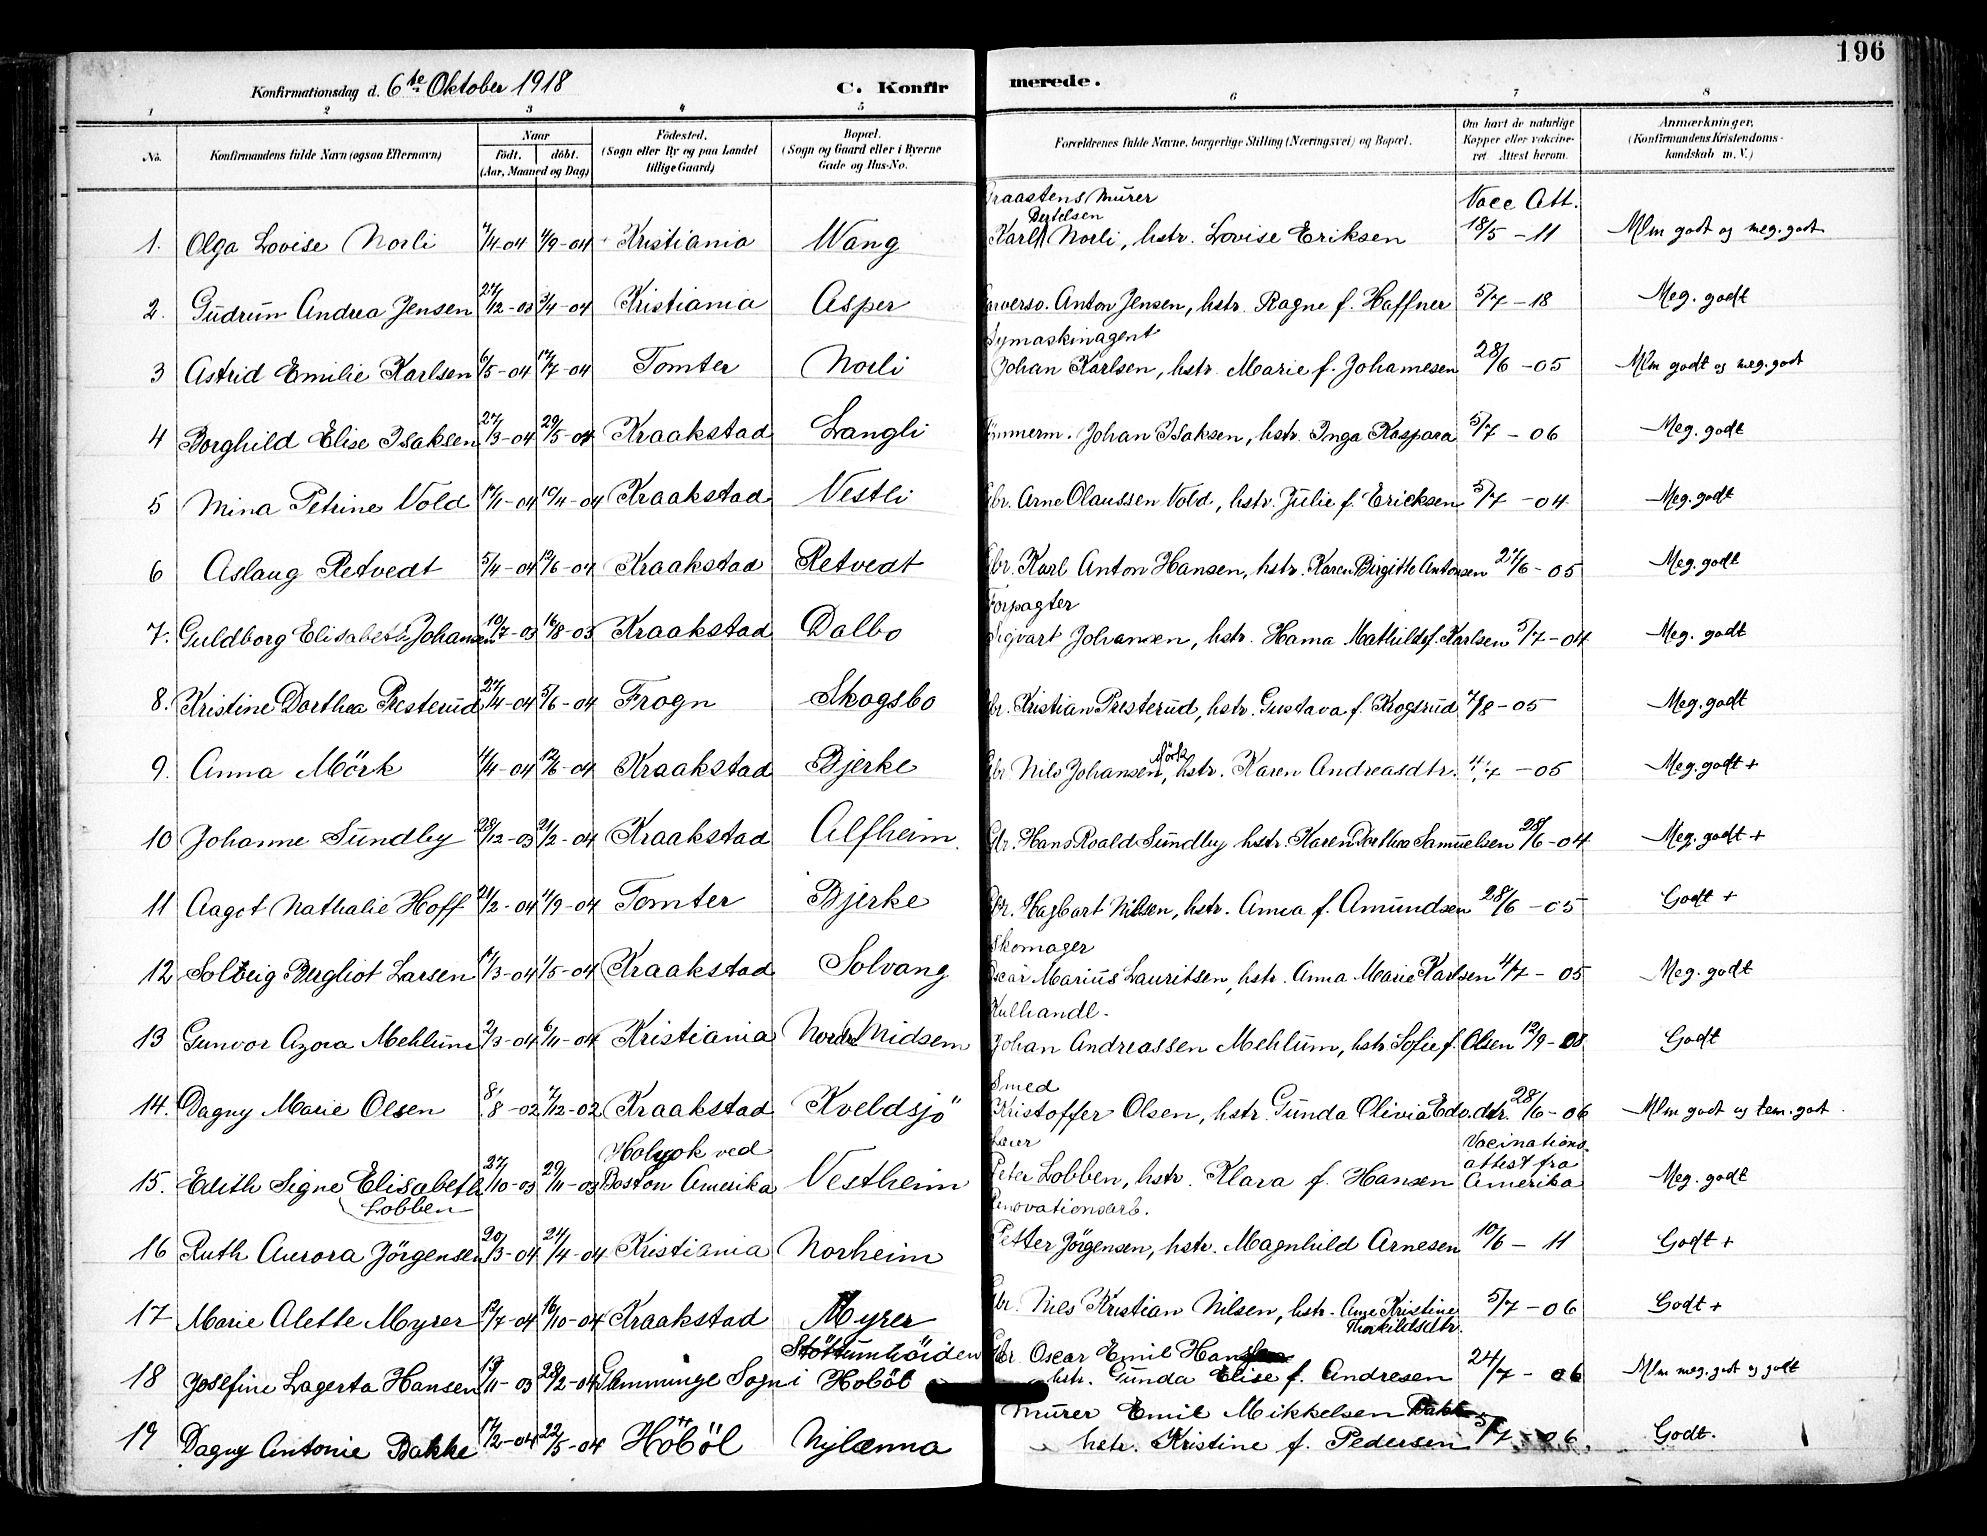 196
Konfirmationsdag d. 6te Oktober 1918 C. Konfirmerede.
1 2 3 4 5 6 7 8
No. Konfirmandens fulde Navn (ogsaa Efternavn) Naar Født. døbt. (Aar, Maaned og Dag) Fødested. (Sogn eller By og paa Landet tillige Gaard) Bopæl. (Sogn og Gaard eller i Byerne Gade og Hus-No. Forældrenes fulde Navne, borgerlige Stilling (Næringsvei) og Bopæl. Om havt de naturlige Kopper eller vaccineret. Attest herom. Anmærkninger. (Konfirmandens Kristendomskundskab m. V.)
Graastens Murer Vacc Att.
Bertelsen
1. Olga Lovise Norli /4-04 4/9-04 Kristiania Wang Karl Norli, hstr. Lovise Eriksen 18/5-11 Mlm godt og meg. godt
2. Gudrun Andrea Jensen 27/12-03 3/4-04 Kristiania Asper Anton Jensen, hstr. Ragne f. Haffner 5/7-18 Meg. godt
Symaskinagent
3 Astrid Emilie Karlsen 6/5-04 17/7-04 Tomter Norli Johan Karlsen, hstr. Marie f. Johannesen 28/6-05 Mlm godt og meg. godt
4 Borghild Elise Isaksen 27/3-04 29/5-04 Kraakstad Langli Tömmerm. Johan Isaksen, hstr. Inga Kaspara 5/7-06 Meg. godt
5 Mina Petrine Vold 17/1-04 10/4-04 Kraakstad Vestli Gbr. Arne Olaussen Vold, hstr. Julie f. Ericksen 5/7-04 Meg. godt
6 Aslaug Retvedt 5/4-04 12/6-04 Kraakstad Retvedt Gbr. Karl Anton Hansen, hstr. Karen Birgitte Antonsen 27/6-05 Meg. godt
Forpagter
7. Guldborg Elisabeth Johansen 10/7-03 16/8-03 Kraakstad Dalbo Sigvart Johansen, hstr. Hanna Mathilde f. Karlsen 5/7-04 Meg. godt
8. Kristine Dorthea Presterud 27/4-04 5/6-04 Frogn Skogsbo Gbr. Kristian Presterud, hstr. Gustava f. Krogsrud 7/8-05 Meg. godt
Mörk
9. Anna Mörk 4/4-04 12/6-04 Kraakstad Bjerke Gbr Nils Johansen, hstr. Karen Andreasdtr. 4/7-05 Meg. godt +
10 Johanne Sundby 28/12-03 21/2-04 Kraakstad Alfheim. Gbr. Hans Roald Sundby hstr. Karen Dorthea Samuelsen 28/6-04 Meg. godt +
11 Aagot Nathalie Hoff 21/2-04 4/9-04 Tomter Bjerke Gbr. Hagbart Nilsen, hstr. Anna f. Amundsen 28/6-05 Godt +
Skomager
12 Solveig Bergliot Larsen 17/3-04 1/5-04 Kraakstad Solvang Oscar Marius Lauritsen, hstr. Anna Marie Karlsen 4/7-05 Meg. godt
Kulhandl.
13 Gunvor Azora Mehlum 2/3-04 6/11-04 Kristiania Nordre Midsem Johan Andreassen Mehlum, hstr. Sofie f. Olsen 12/9-08 Godt
Smed
14. Dagny Marie Olsen 8/8-02 7/12-02 Kraakstad Kveldsjö Kristoffer Olsen, hstr. Gunda Olivia Edv.dtr. 28/6-06 Mlm godt og tem. godt.
Holyok ved Leier Vacinations-
attest fra
15. Edith Signe Elisabeth 27/10-03 29/11-03 Boston Amerika Vestheim Peter Lobben, hstr. Klara f. Hansen Amerika Meg. godt
Lobben Renovationsarb.
16 Ruth Aurora Jörgensen 20/3-04 24/4-04 Kristiania Norheim Petter Jörgensen, hstr. Magnhild Arnesen 10/6-11 Godt +
17 Marie Alette Myrer 12/7-04 16/10-04 Kraakstad Myrer Gbr. Nils Kristian Nilsen, hstr. Ane Kristine 5/7-06 Godt +
Thorkildsdtr.
Stöttumhöiden Gbr. Oscar Emil Hansen
18 Josefine Lagerta Hansen 19/11-03 28/2-04 Glemminge Sogn i Hoböl hstr. Gunda Elise f. Andresen 24/7-06 Mlm meg. godt og godt
Murer Emil Mikkelsen Bakke
19 Dagny Antonie Bakke 14/2-04 22/5-04 Höböl Nylænna hstr. Kristine f. Pedersen 5/7-06. Godt.